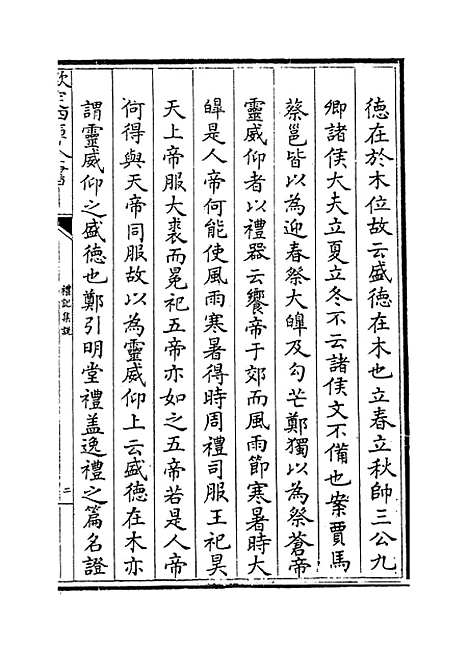 德在於木位故云盛德在木也立春立秋帥三公九
卿諸侯大夫立夏立冬不云諸侯文不備也案賈馬
蔡邕皆以為迎春祭大皥及勾芒鄭獨以為祭蒼帝
靈威仰者以禮器云饗帝于郊而風雨節寒暑時大
皥是人帝何能使風雨寒暑得時周禮司服王祀昊
天上帝服大裘而冕祀五帝亦如之五帝若是人帝
何得與天帝同服故以為靈威仰上云盛德在木亦
謂靈威仰之盛德也鄭引明堂禮盖逸禮之篇名證
欽定四庫全書
禮記集說
二